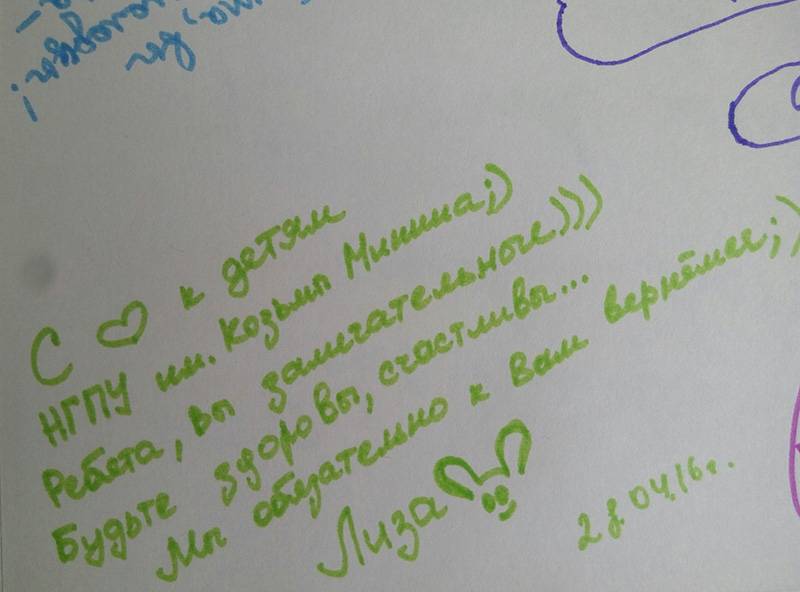 С ♡ к детям
НГПУ им. Козьмы Минина;)
Ребята, вы замечательные)))
Будьте здоровы, счастливы...
Мы обязательно к вам вернёмся;)
Лиза
28.04.16г.